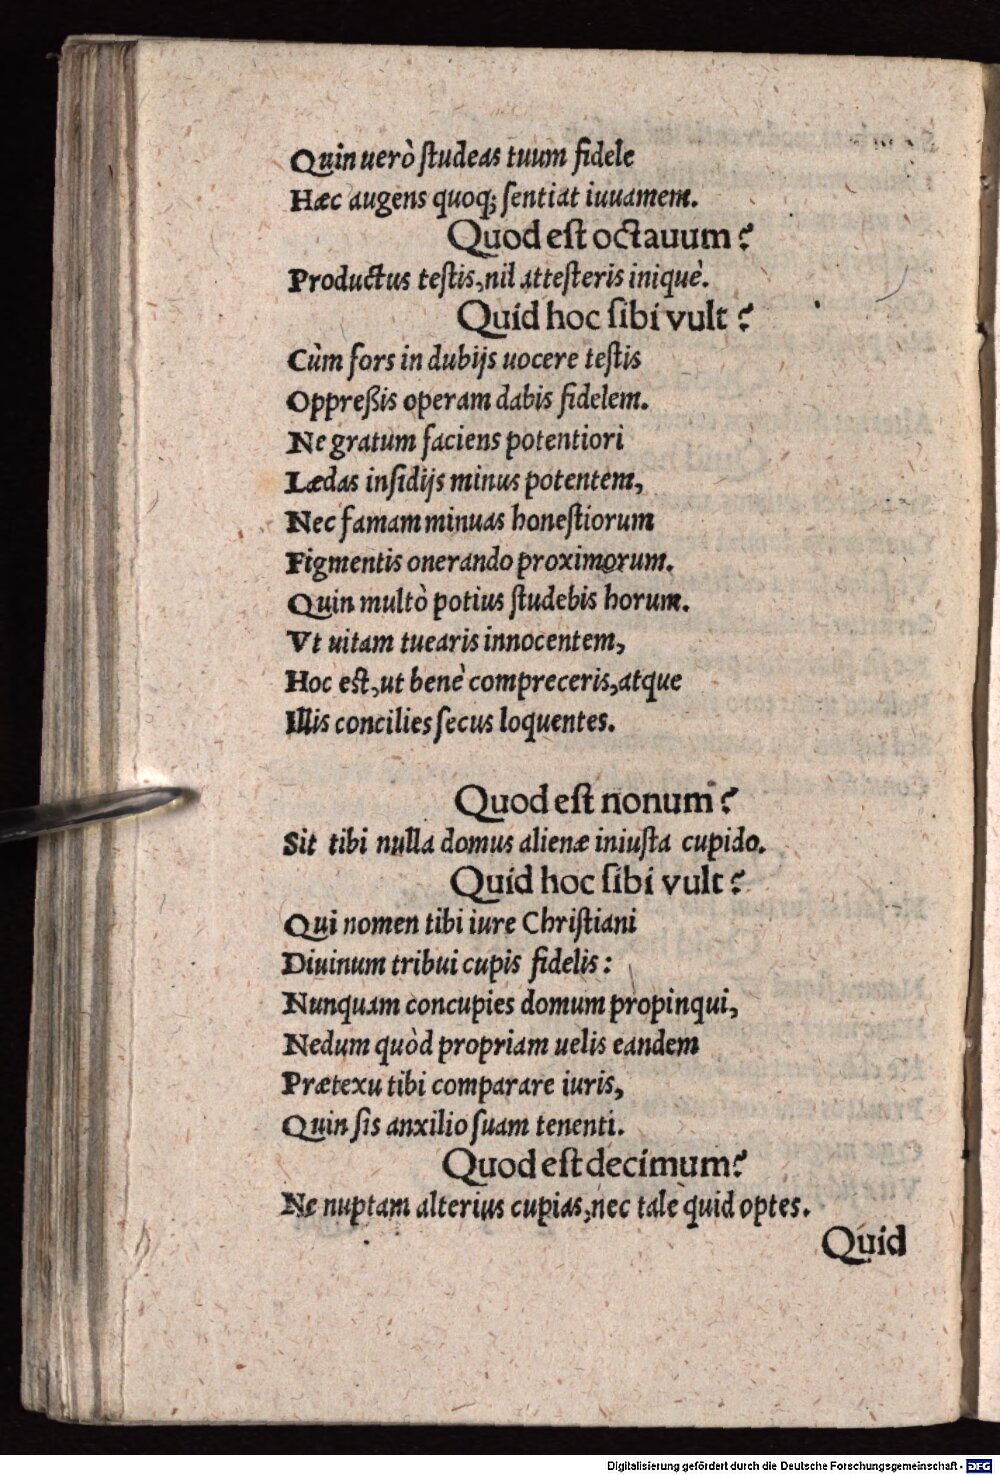 Quin uerò ſtudeas tuum fidele
Hæc augens quoq; ſentiat iuuamem.
Quod eſt octauum?
Productus teſtis, nil atteſteris iniquè.
Quid hoc ſibi vult?
Cùm fors in dubijs uocere teſtis
Oppreßis operam dabis fidelem.
Ne gratum faciens potentiori
Lædas inſidijs minus potentem,
Nec famam minuas honeſtiorum
Figmentis onerando proximorum.
Quin multò potius ſtudebis horum.
Vt uitam tuearis innocentem,
Hoc eſt, ut benè compreceris, atque
Illis concilies ſecus loquentes.
Quod eſt nonum?
Sit tibi nulla domus alienæ iniuſta cupido.
Quid hoc ſibi vult?
Qui nomen tibi iure Chriſtiani
Diuinum tribui cupis fidelis:
Nunquam concupies domum propinqui,
Nedum quòd propriam uelis eandem
Prætexu tibi comparare iuris,
Quin ſis anxilio ſuam tenenti.
Quod eſt decimum?
Ne nuptam alterius cupias, nec tale quid optes.
Quid
Digitalisierung gefördert durch die Deutsche Forschungsgemeinschaft - DFG